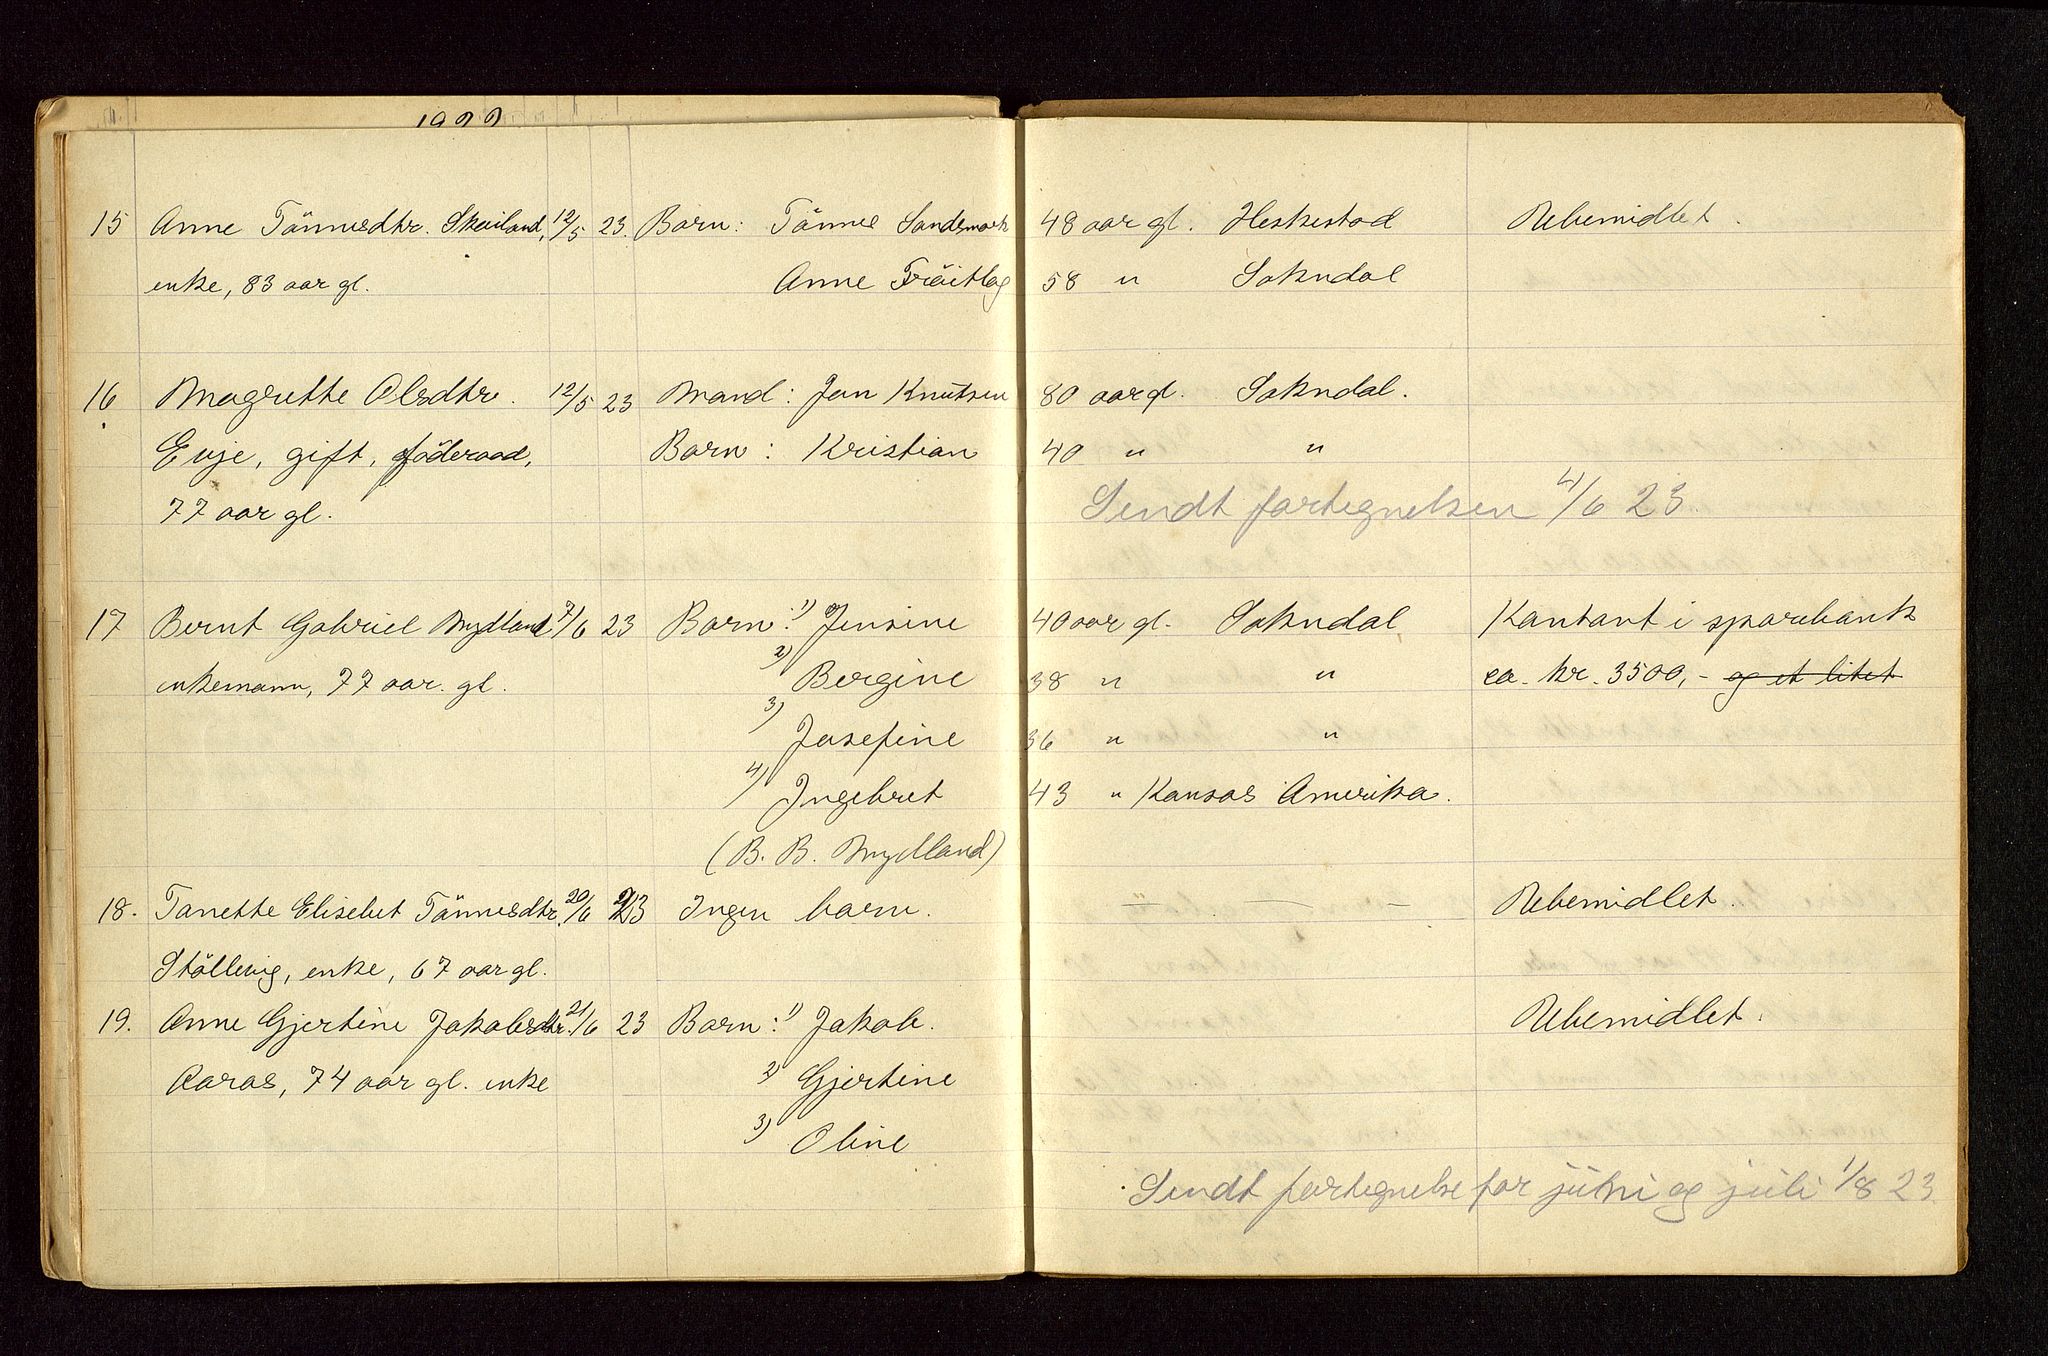 1922
15 Anne Tönnesdtr. Skailand, 12/5 23. Barn: Tönnes Sandsmark 48 aar gl. Heskestad Ubemidlet.
enke, 83 aar gl. Anne Fröitlog 58 " Sokndal
16 Magrette Olsdtr. 12/5 23 Mand: Jan Knutsen 80 aar gl. Sokndal.
Evje, gift, föderaad, Barn: Kristian 40 " "
77 aar gl. Sendt fortegnelsen 4/6 23.
17 Bernt Gabriel Mydland 7/6 23 Barn: 1) Jensine 40 aar gl. Sokndal Kontant i sparebank
enkemann, 77 aar. gl. 2) Bergine 38 " " ca. kr. 3500,- og et litet
3) Josefine 36 " "
4) Ingebret 43 " Kansas Amerika.
(B. B. Mydland)
18. Tanette Elisebet Tönnesdtr. 20/6 23 Ingen barn. — " — — Ubemidlet.
Stöllevig, enke, 67 aar gl.
19. Anne Gjertine Jakobsdtr. 21/6 23 Barn: 1) Jakob. Ubemidlet.
Aaros, 74 aar gl. enke 2) Gjertine
3) Oline
Sendt fortegnelse for juni og juli 1/8 23